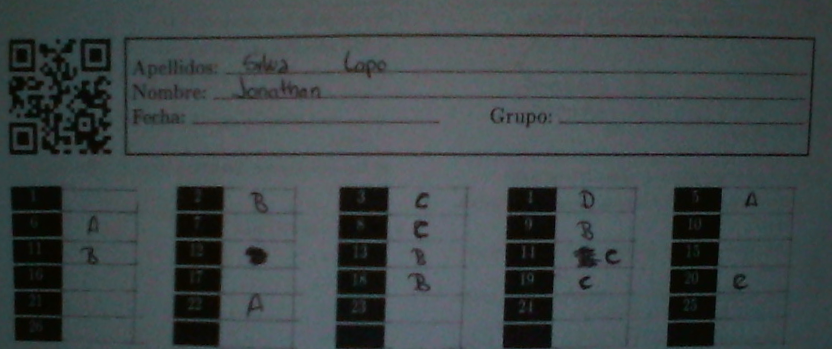 Apellidos: Silva Lopo
Nombre: Jonathan
Fecha: Grupo:
1 2 B 3 C 4 D 5 A
6 A 7 8 C 9 B 10
11 B 12 13 B 14 C 15
16 17 18 B 19 C 20 C
21 22 A 23 24 25
26